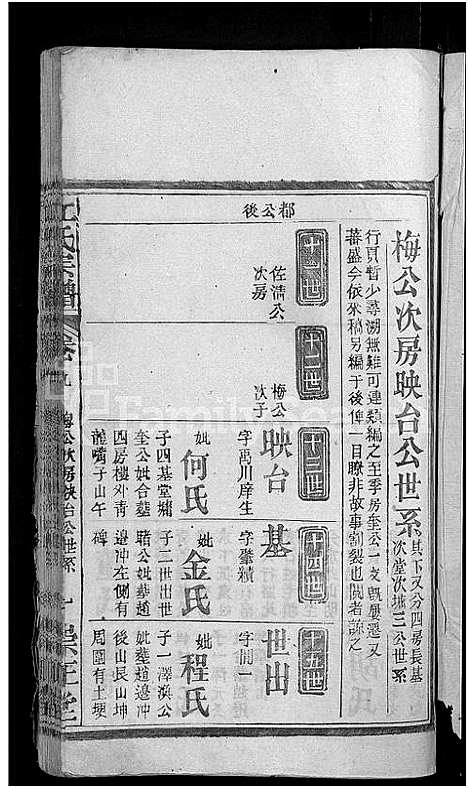 梅公次房映台公世系
其下又分四房長基
次堂次墉三公世系
行頁暫少尋溯無難可連類編之至季房奎公一支既屢遷又
蕃盛今依來稿另編于後俾一目瞭非故事割裂也閱者諒之
都公後
十一世
佐清公
次房
十二世
梅公
次子
十三世
映台
字禹川庠生
妣何氏
子四基堂墉
奎公妣合墓
四房樓外青
龍嘴子山午
十四世
基
字肇績
妣金氏
子二世出世
公妣墓趙
邊冲左側有
碑
十五世
世出
字開一
妣程氏
子一澤滇公
妣墓趙邊冲
後山艮山坤
周圍有土埂
氏宗譜
卷九
梅公次房映台公世系
七
崇正堂